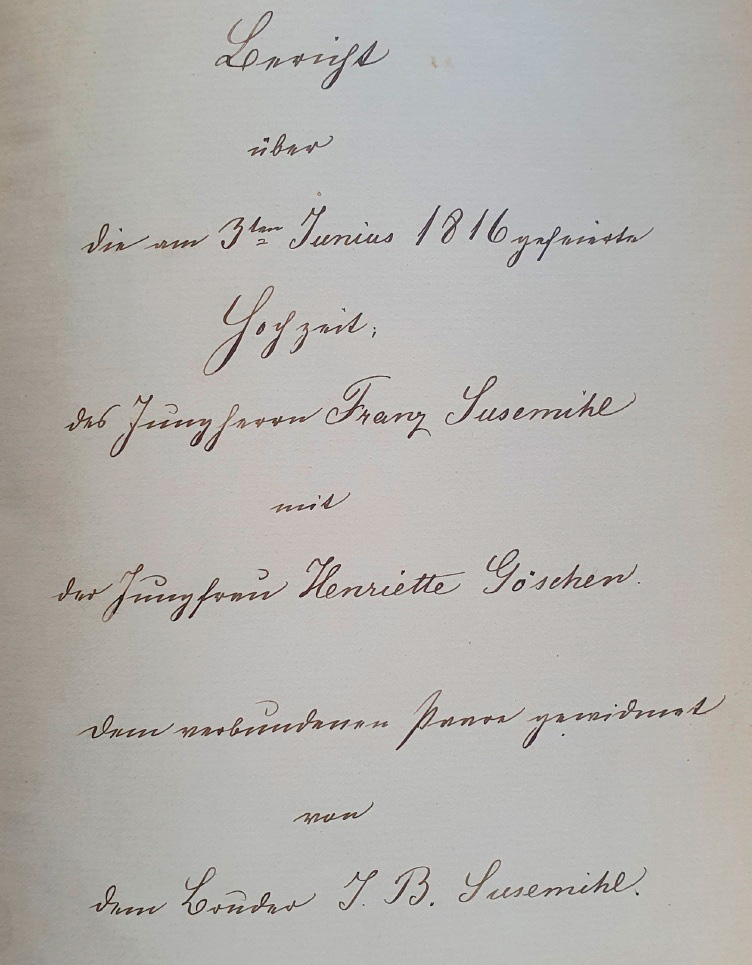 Bericht
über
die am 3ten Junius 1816 gefeierte
Hochzeit;
des Jungherrn Franz Susemihl
mit
der Jungfrau Henriette Göschen.
dem verbundenen Paare gewidmet
von
dem Bruder J. B. Susemihl.